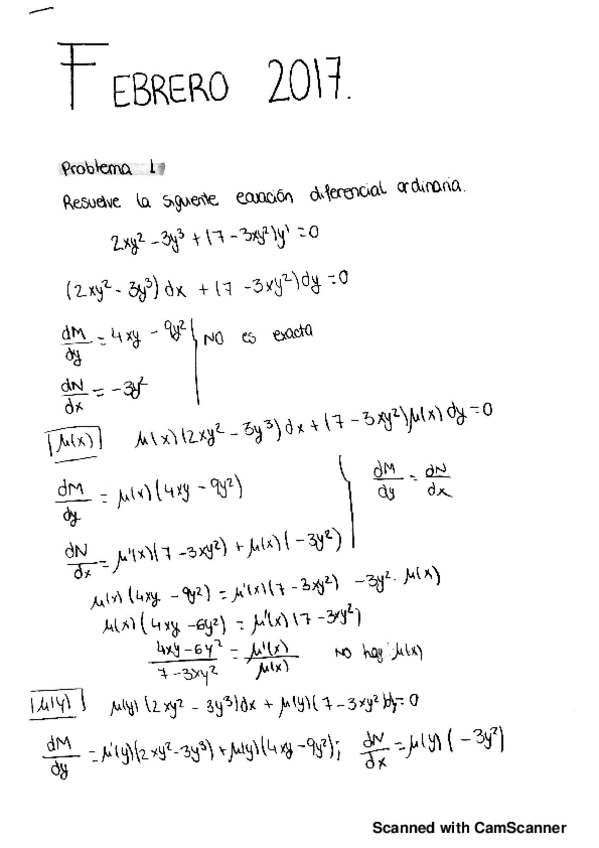 FEBRERO 2017.
Problema 1
Resuelve la siguiente ecuación diferencial ordinaria.
2xy² - 3y³ + (7 - 3xy²)y' = 0
(2xy² - 3y³) dx + (7 - 3xy²) dy = 0
dM/dy = 4xy - 9y² | NO es exacta
dN/dx = -3y²
μ(x) μ(x)(2xy² - 3y³) dx + (7 - 3xy²) μ(x) dy = 0
dM/dy = μ(x)(4xy - 9y²) dM/dy = dN/dx
dN/dx = μ'(x)(7 - 3xy²) + μ(x)(-3y²)
μ(x)(4xy - 9y²) = μ'(x)(7 - 3xy²) - 3y² · μ(x)
μ(x)(4xy - 6y²) = μ'(x)(7 - 3xy²)
4xy - 6y² / 7 - 3xy² = μ'(x) / μ(x) NO hay μ(x)
μ(y) μ(y)(2xy² - 3y³)dx + μ(y)(7 - 3xy²)dy = 0
dM/dy = μ'(y)(2xy² - 3y³) + μ(y)(4xy - 9y²); dN/dx = μ(y)(-3y²)
Scanned with CamScanner